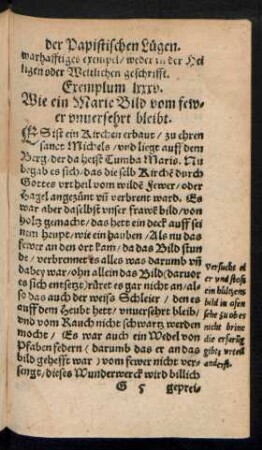 der Papistischen Lügen.
warhafftiges exempel/ weder in der Hei
ligen oder Weltlichen geschrifft.
Exemplum lxxv.
Wie ein Marie Bild vom few-
er vnuersehrt bleibt.
ES ist ein Kirchen erbawt/ zu ehren
sanct Michels/ vnd liegt auff dem
Berg/ der da heist Tumba Maris. Nu
begab es sich/ das die selb Kirchē durch
Gottes vrtheil vom wildē Fewer/ oder
Hagel angezünt vñ verbrent ward. Es
war aber daselbst vnser frawē bild/ von
holtz gemacht/ das hett ein deck auff sei
nem heupt/ wie ein hauben/ Als nu das
fewer an den ort kam/ da das Bild stun
de/ verbrennet es alles was darumb vñ
dabey war/ ohn allein das Bild/ daruor
es sich entsetze/ rüret es gar nicht an/ al-
so das auch der weiss Schleier/ den es
auff dem Heubt hett/ vnuersehrt bleib/
vnd vom Rauch nicht schwartz werden
mocht/ Es war auch ein Wedel von
Pfaben federn/ darumb das er an das
bild gehefft war/ vom fewer nicht ver-
sengt/ dieses Wunderwerck wird billich
G 5 geprei-
Versuchs al
er vnd stoss
ein hültzens
bild in ofen
sehe zu ob es
nicht brine
die erfarūg
gibts vrteil
anderst.